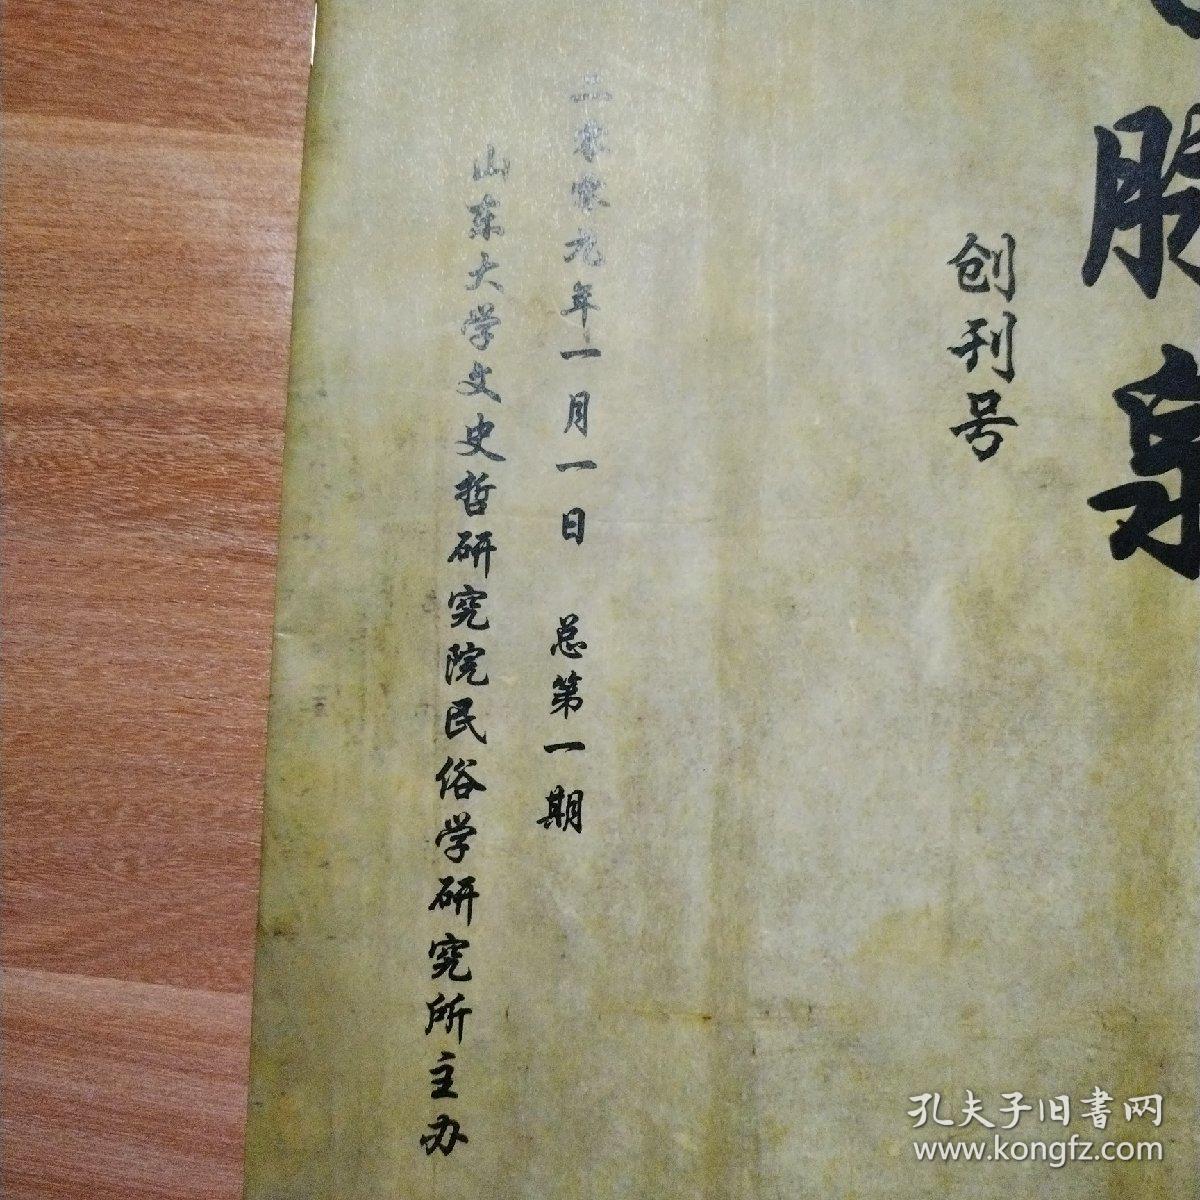 股泉
创刊号
二零零九年一月一日 总第一期
山东大学文史哲研究院民俗学研究所主办
孔夫子旧書网
www.kongfz.com